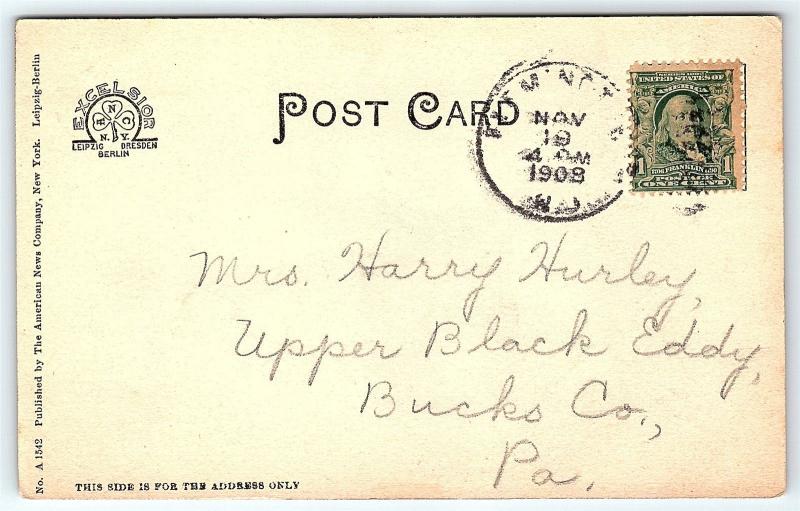 No. A 1542 Published by The American News Company, New York. Leipzig-Berlin
EXCELSIOR
A N C
N.Y.
LEIPZIG DRESDEN
BERLIN
POST CARD
NOV
1908
SERIES 1902
UNITED STATES OF
AMERICA
FRANKLIN
1 POSTAGE 1
ONE CENT
Mrs. Harry Hurley,
Upper Black Eddy,
Bucks Co.,
Pa.
THIS SIDE IS FOR THE ADDRESS ONLY